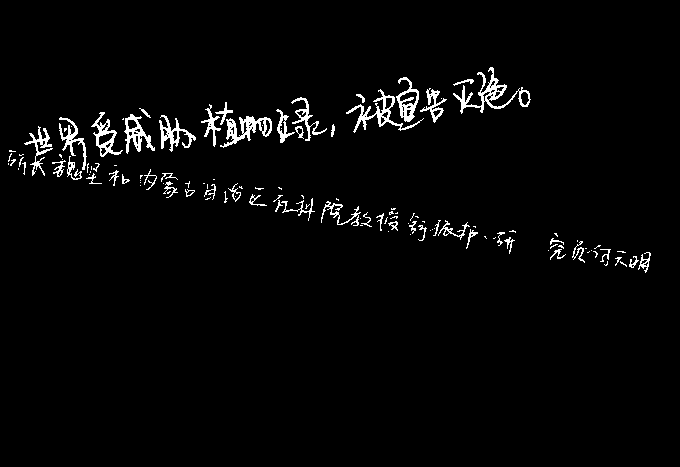 世界受威胁植物红录,被宣告灭绝。
所长魏坚和内蒙古自治区社科院教授舒振邦、研究员何天明